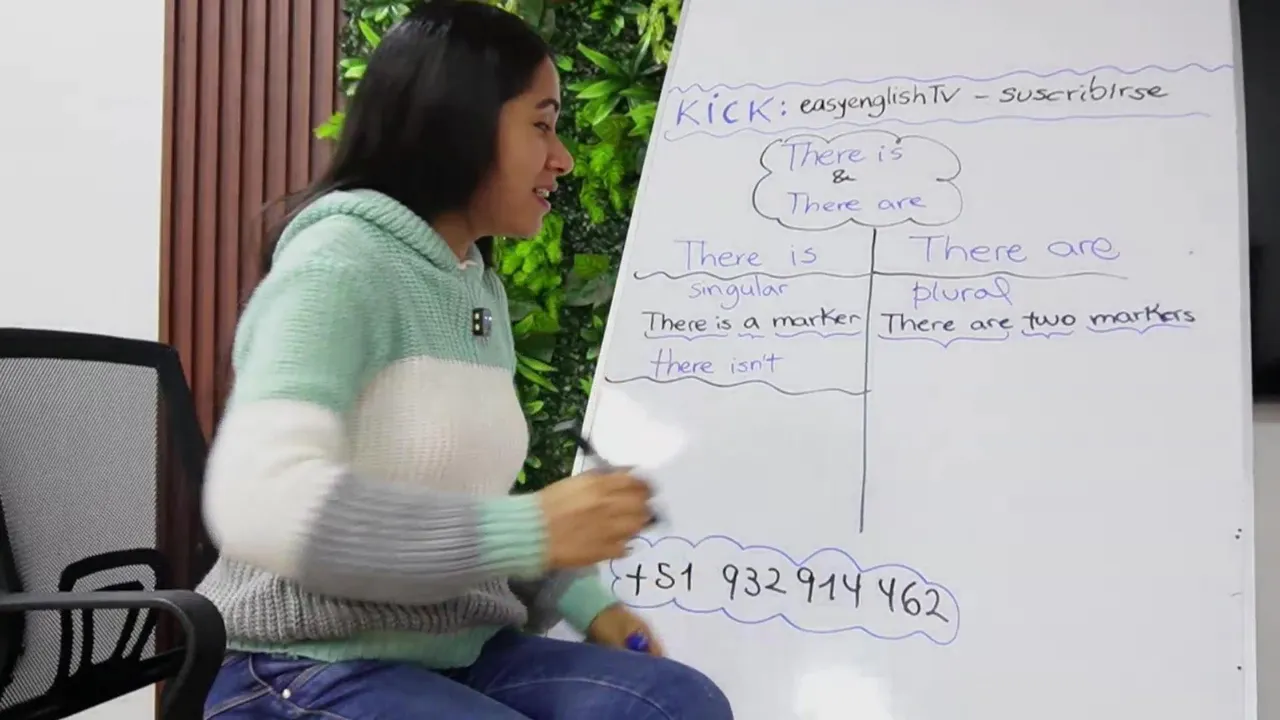 KiCK: easyenglishTV - suscribirse
There is
&
There are
There is There are
singular plural
There is a marker There are two markers
there isn't
+51 932 914 462